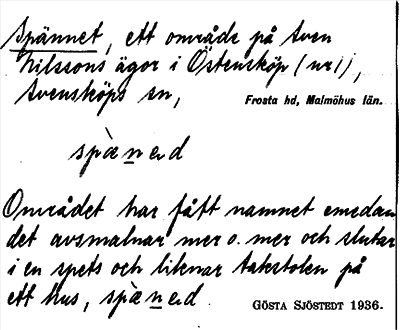 Spännet, ett område på Sven
Nilssons ägor i Östensköp (nr 1),
Svensköps sn,
Frosta hd, Malmöhus län.
spànəd
Området har fått namnet emedan
det avsmalnar mer o. mer och slutar
i en spets och liknar takstolen på
ett hus, spànəd.
GÖSTA SJÖSTEDT 1936.